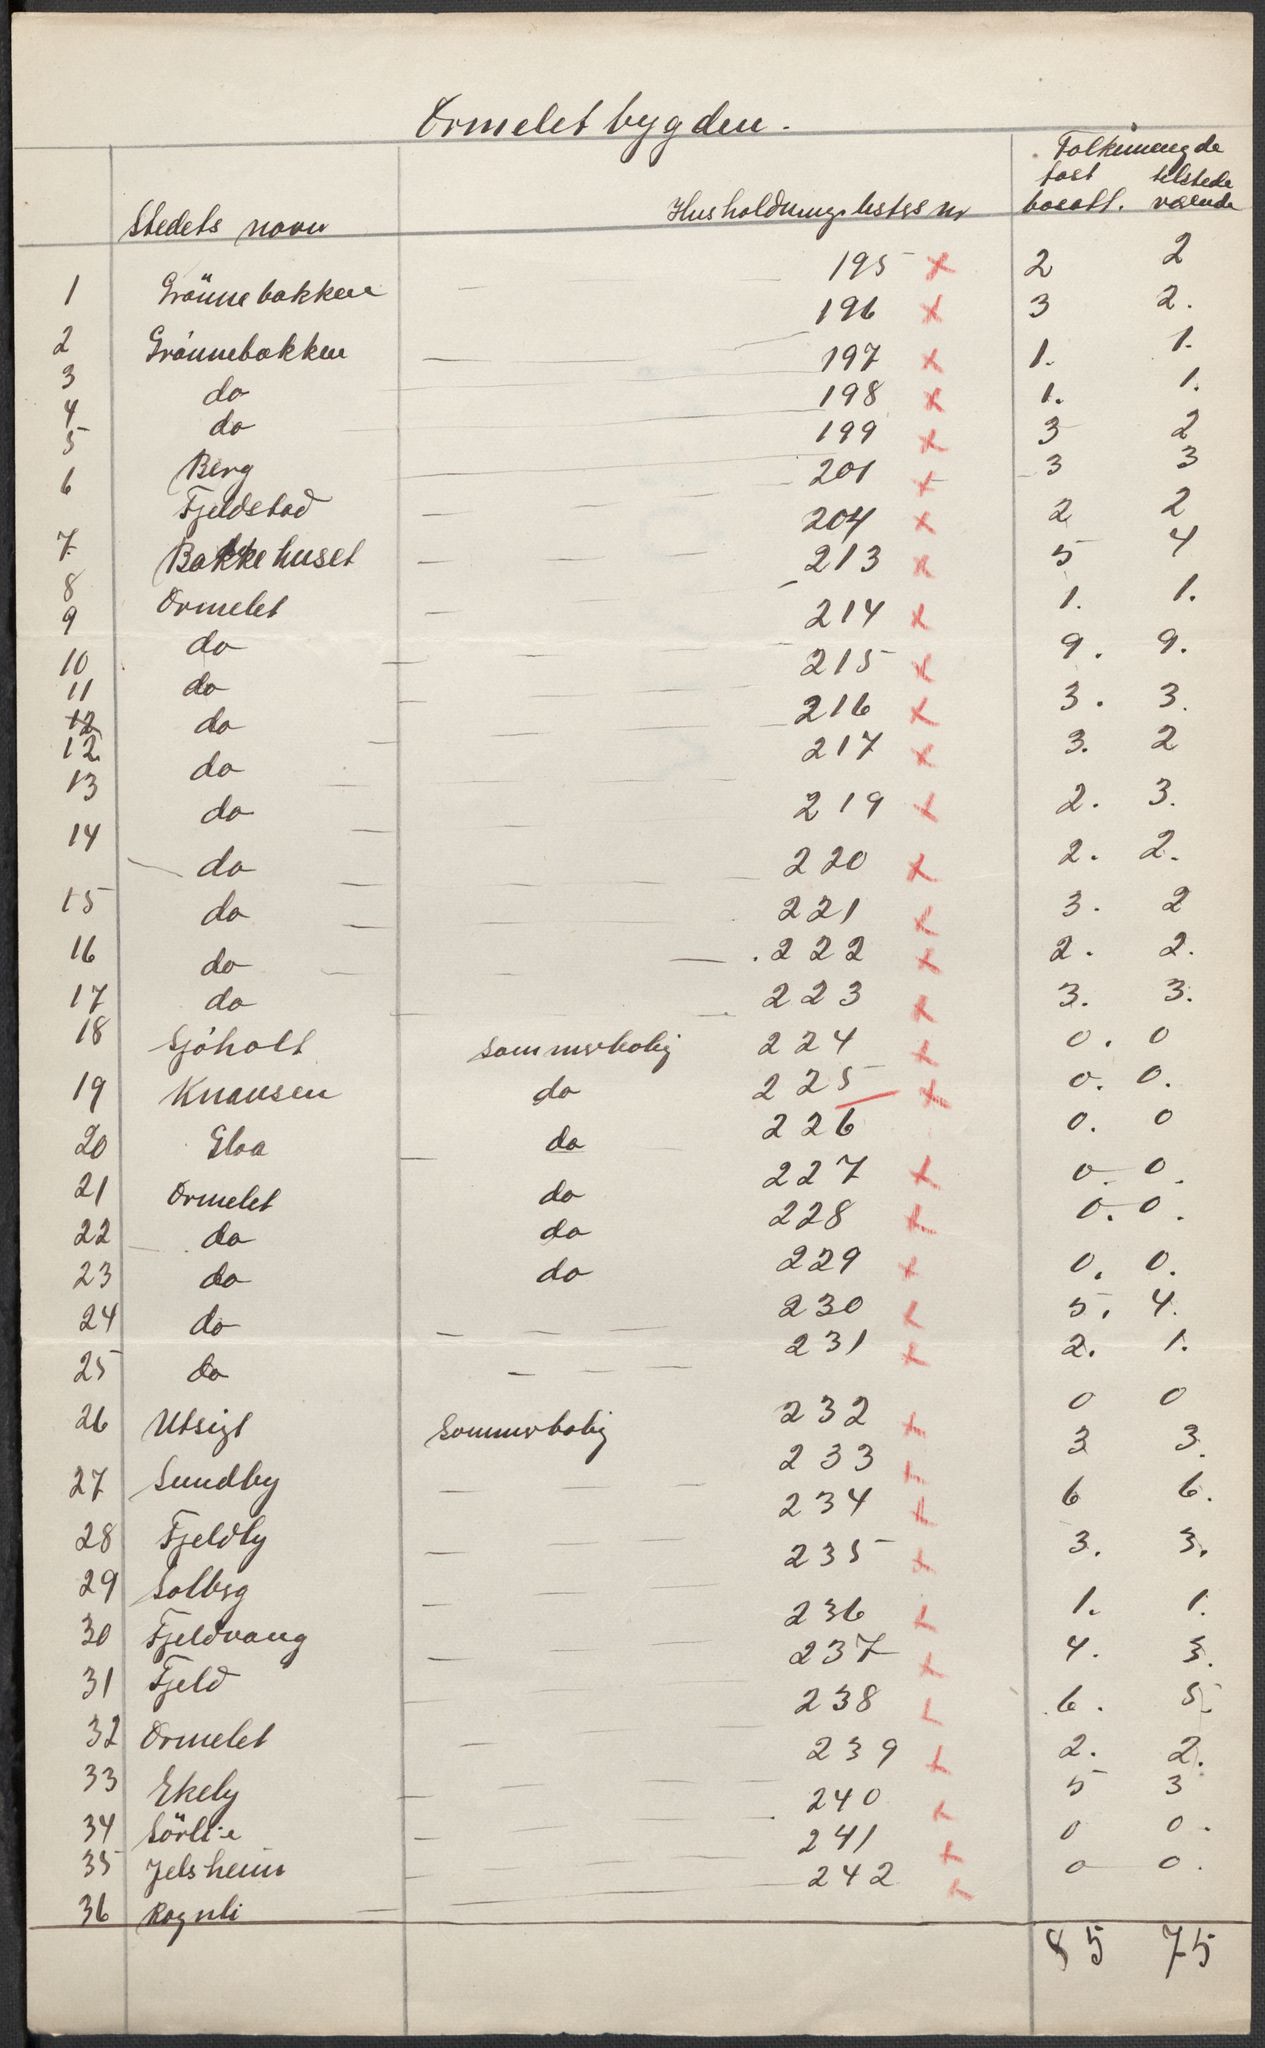 Ormelet bygden.
Folkemengde
Stedets navn Husholdningslistes nr fast bosatt. tilstede værende
1 Grönnebakken — 195 x 2 2
2 Grönnebakken — 196 x 3 2.
3 do 197 x 1. 1.
4 do 198 x 1. 1.
5 Berg 199 x 3 2
6 Fjeldstad 201 x 3 3
7 Bakkehuset — 204 x 2 2
8 Ormelet — 213 x 5 4
9 do 214 x 1. 1.
10 do 215 x 9. 9.
11 do 216 x 3. 3.
12
12 do 217 x 3. 2
13 do 219 x 2. 3.
14 do 220 x 2. 2.
15 do 221 x 3. 2
16 do 222 x 2. 2.
17 do 223 x 3. 3.
18 Sjöholt sommerbolig 224 x 0. 0
19 Knausen do 225 x 0. 0.
20 Gloa do 226 0. 0
21 Ormelet do 227 x 0. 0.
22 do do 228 x 0. 0.
23 do do 229 x 0. 0.
24 do — 230 x 5. 4.
25 do — 231 x 2. 1.
26 Utsigt Sommerbolig 232 x 0 0
27 Sundby — 233 x 3 3.
28 Fjeldby — 234 x 6 6.
29 Solberg — 235 x 3. 3.
30 Fjeldvang — 236 x 1. 1.
31 Fjeld — 237 x 4. 3.
32 Ormelet — 238 x 6. 5.
33 Ekely — 239 x 2. 2.
34 Sörlie — 240 x 5 3
35 Jelsheim — 241 x 0 0.
36 Rognli — 242 x 0 0.
85 75